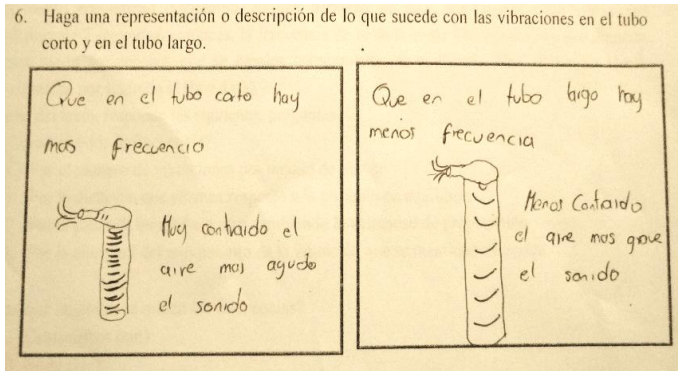 6. Haga una representación o descripción de lo que sucede con las vibraciones en el tubo
corto y en el tubo largo.
Que en el tubo corto hay
mas frecuencia
Muy contraido el
aire mas agudo
el sonido
Que en el tubo largo hay
menos frecuencia
Menos Contraido
el aire mas grave
el sonido